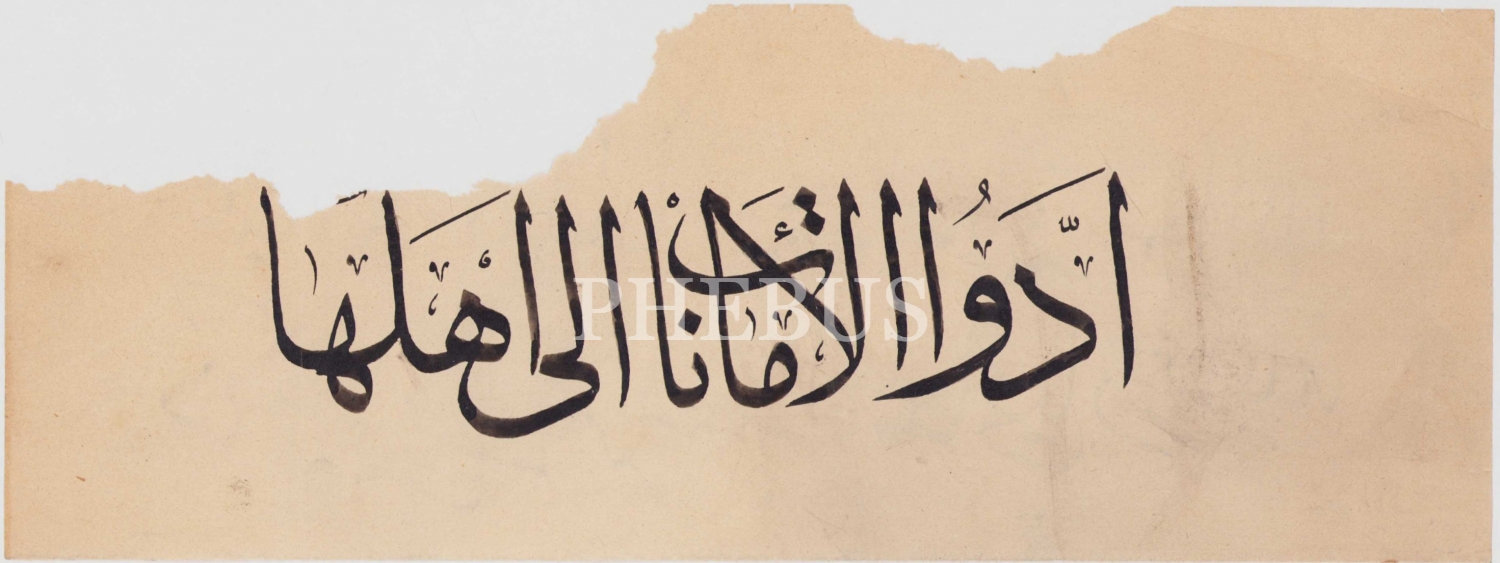 ادّوا الامانات الى اهلها
PHEBUS